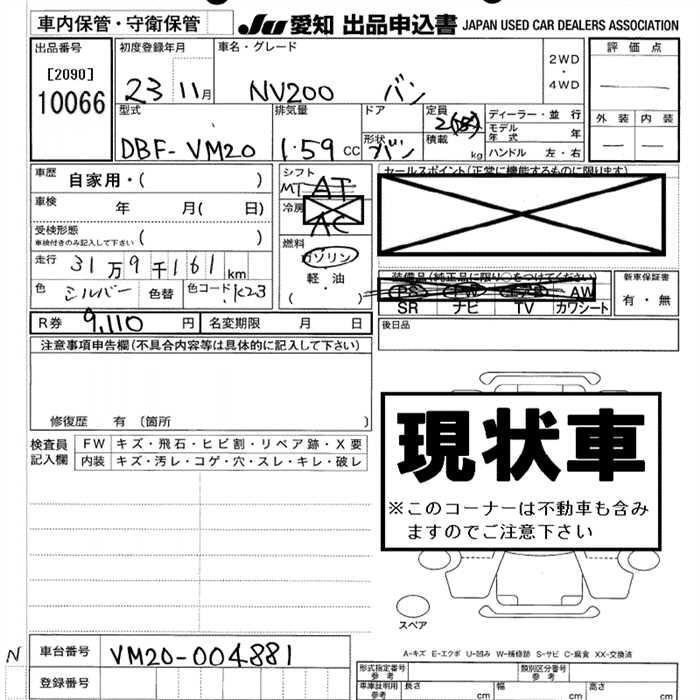 車内保管・守衛保管
JU 愛知 出品申込書 JAPAN USED CAR DEALERS ASSOCIATION
出品番号
[2090]
10066
初度登録年月
23 11月
車名・グレード
NV200 バン
2WD
・
4WD
評価点
外装 内装
型式
DBF-VM20
排気量
1.59 CC
ドア
形状
バン
定員
積載
kg
ディーラー・並行
モデル年式 年
ハンドル 左・右
車歴 自家用・( )
車検 年 月( 日)
受検形態
車検付きのみ記入して下さい ( )
走行 31万9千161km
色 シルバー 色替 色コード K23
シフト
MT AT
冷房
AC
燃料
ガソリン
軽・油
( )
セールスポイント(正常に機能するものに限ります)
装備品(純正品に限り○をつけてください)
PS PW エアB AW
SR ナビ TV カワシート
新車保証書
有・無
R券 9,110 円 名変期限 月 日
後日品
注意事項申告欄(不具合内容等は具体的に記入して下さい)
修復歴 有 〔箇所 〕
検査員記入欄
FW キズ・飛石・ヒビ割・リペア跡・X要
内装 キズ・汚レ・コゲ・穴・スレ・キレ・破レ
現状車
※このコーナーは不動車も含み
ますのでご注意下さい
スペア
A-キズ E-エクボ U-凹み W-補修跡 S-サビ C-腐食 XX-交換済
N
車台番号 VM20-004881
登録番号
型式指定番号 参考
類別区分番号 参考
車庫証明用 参考
長さ cm 幅 cm 高さ cm